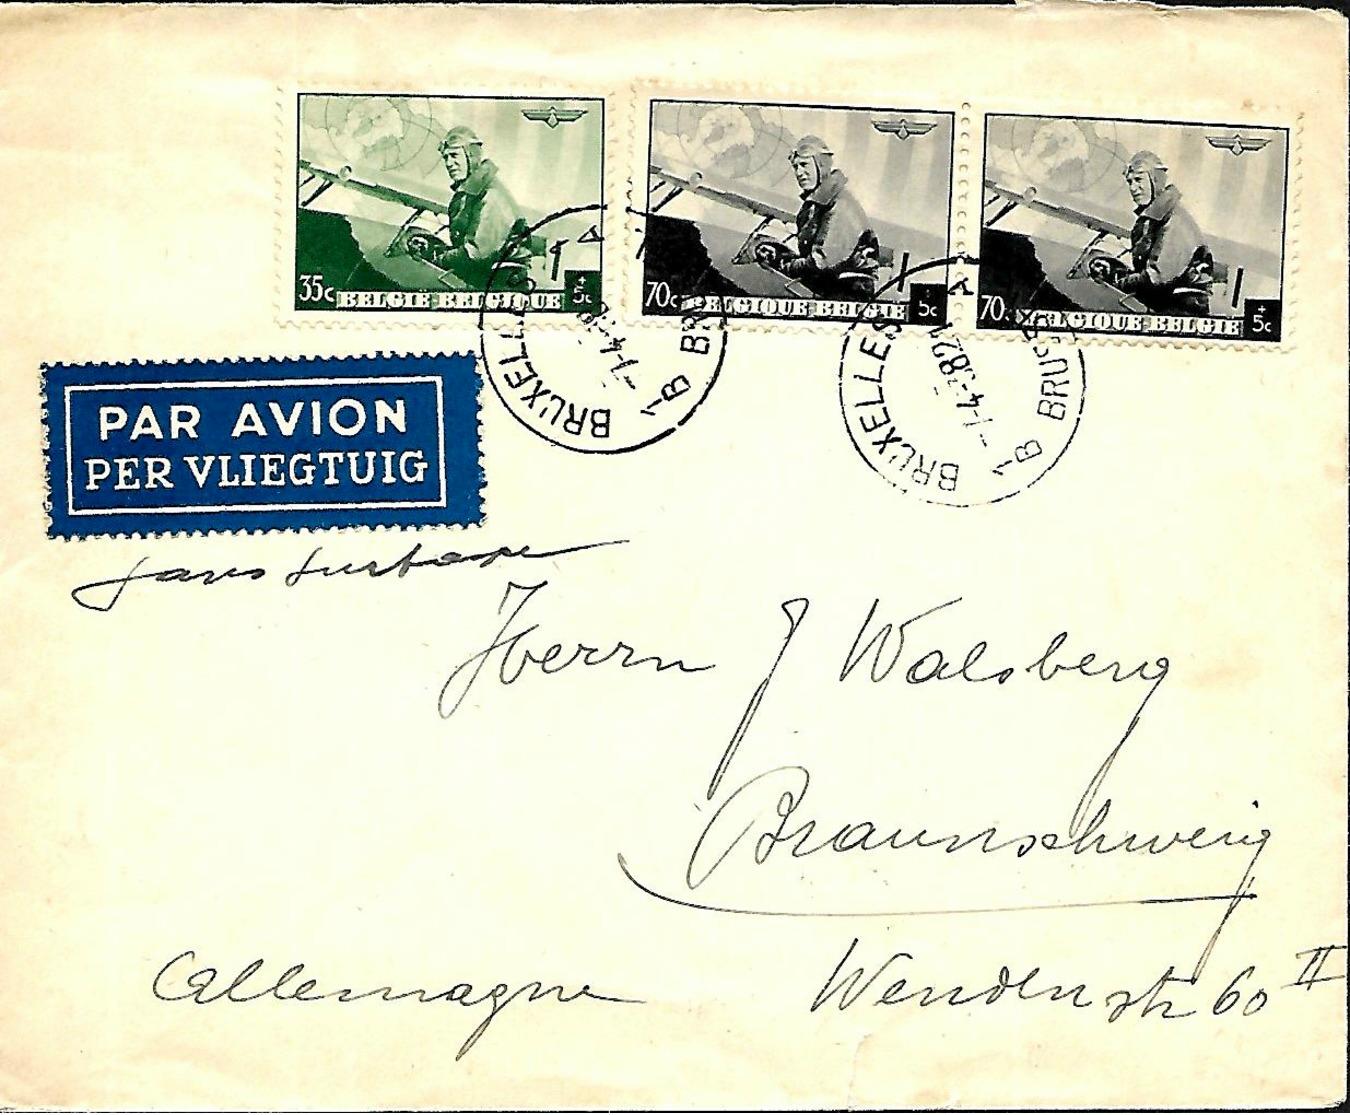 35c BELGIË-BELGIQUE + 5c
70c BELGIQUE-BELGIE 5c
70c BELGIQUE-BELGIE + 5c
BRUXELLES
1B
BRUXELLES
1B BRUSSEL
PAR AVION
PER VLIEGTUIG
sans surtaxe
Herrn J Walsberg
Braunschweig
Allemagne
Wendenstr 60 II